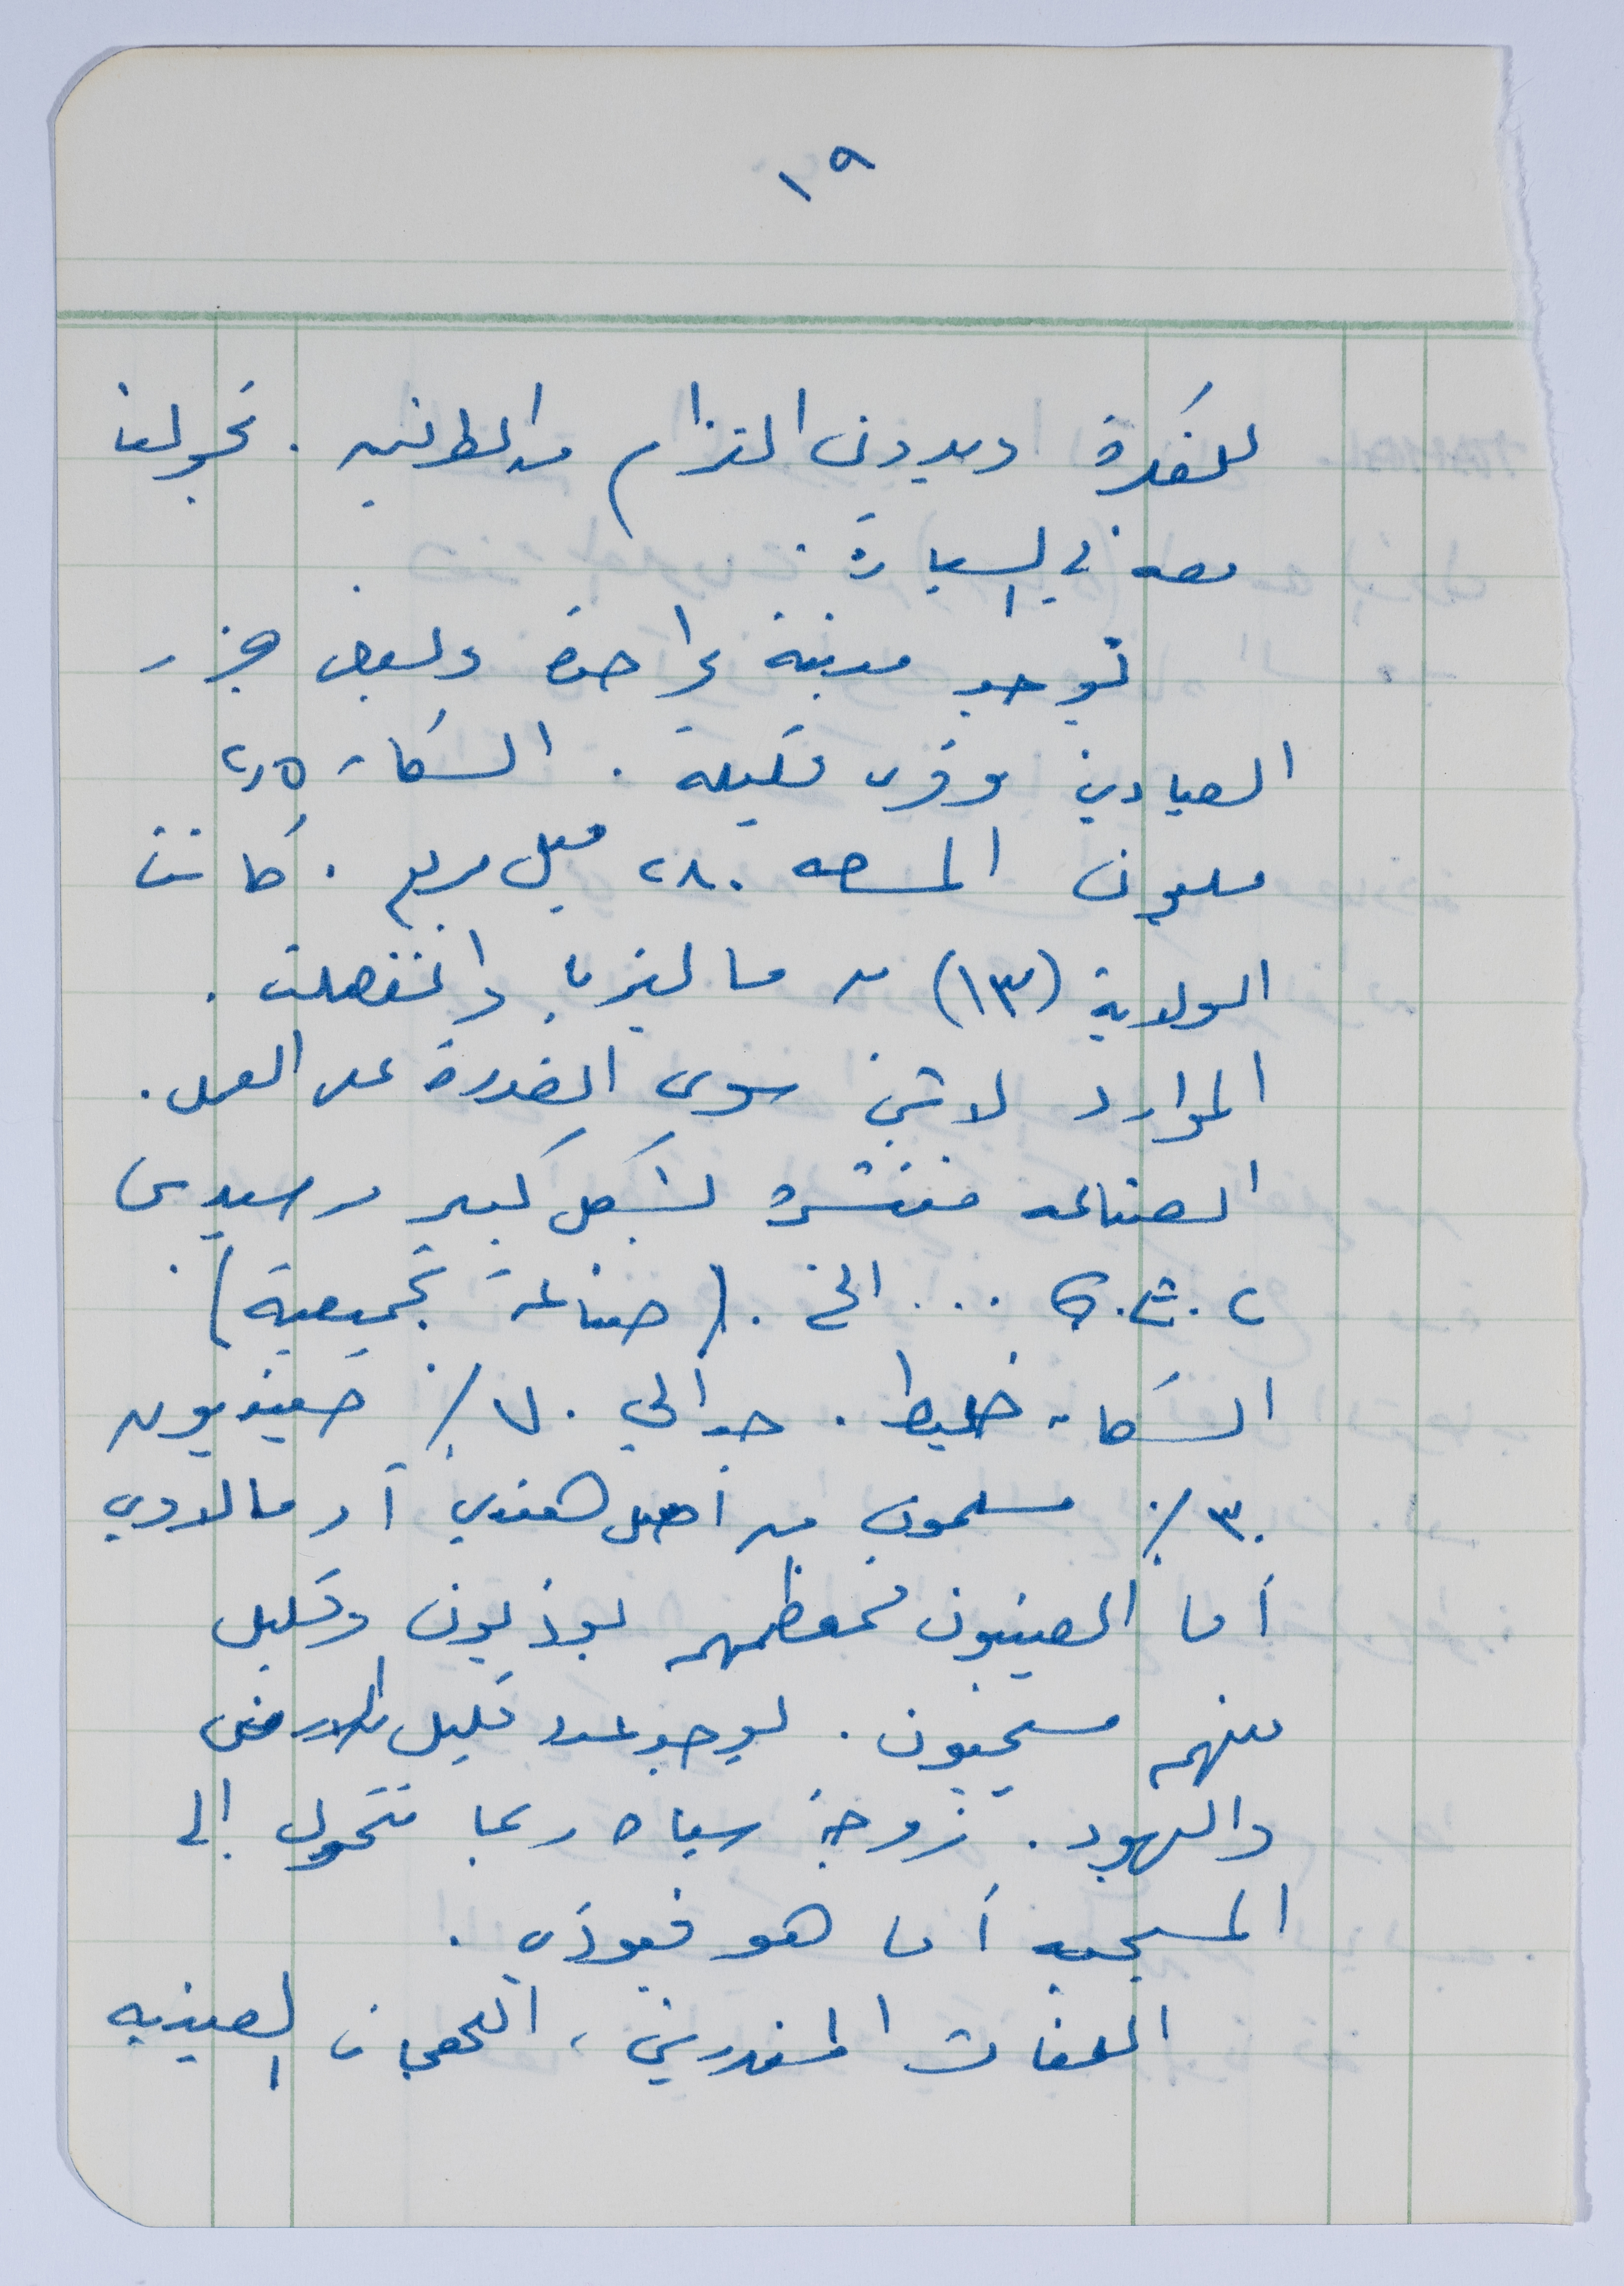 ١٩
للفكرة وبدون التزام من الطرفين . تجولنا
معه في السيارة .
توجد مدينة واحدة وبعض جزر
الصيادين وقرى قليلة . السكان ٢٫٥
مليون المساحه ٢٨٠ ميل مربع . كانت
الولاية (١٣) من ماليزيا وانفصلت .
الموارد لا شيء سوى القدرة على العمل .
الصناعه منتشرة بشكل كبير مرسيدس
... الخ . (صناعة تجميعية) .
السكان خليط . حوالي ٧٠٪ صينيون
٣٠٪ مسلمون من أصل هندي أو مالاوي
أما الصينيون فمعظمهم بوذيون وقليل
منهم مسيحيون . يوجد عدد قليل من الارمن
واليهود . زوجة سياه ربما تتحول إلى
المسيحيه أما هو فبوذي .
اللغات المندرين ، اللهجات الصينيه